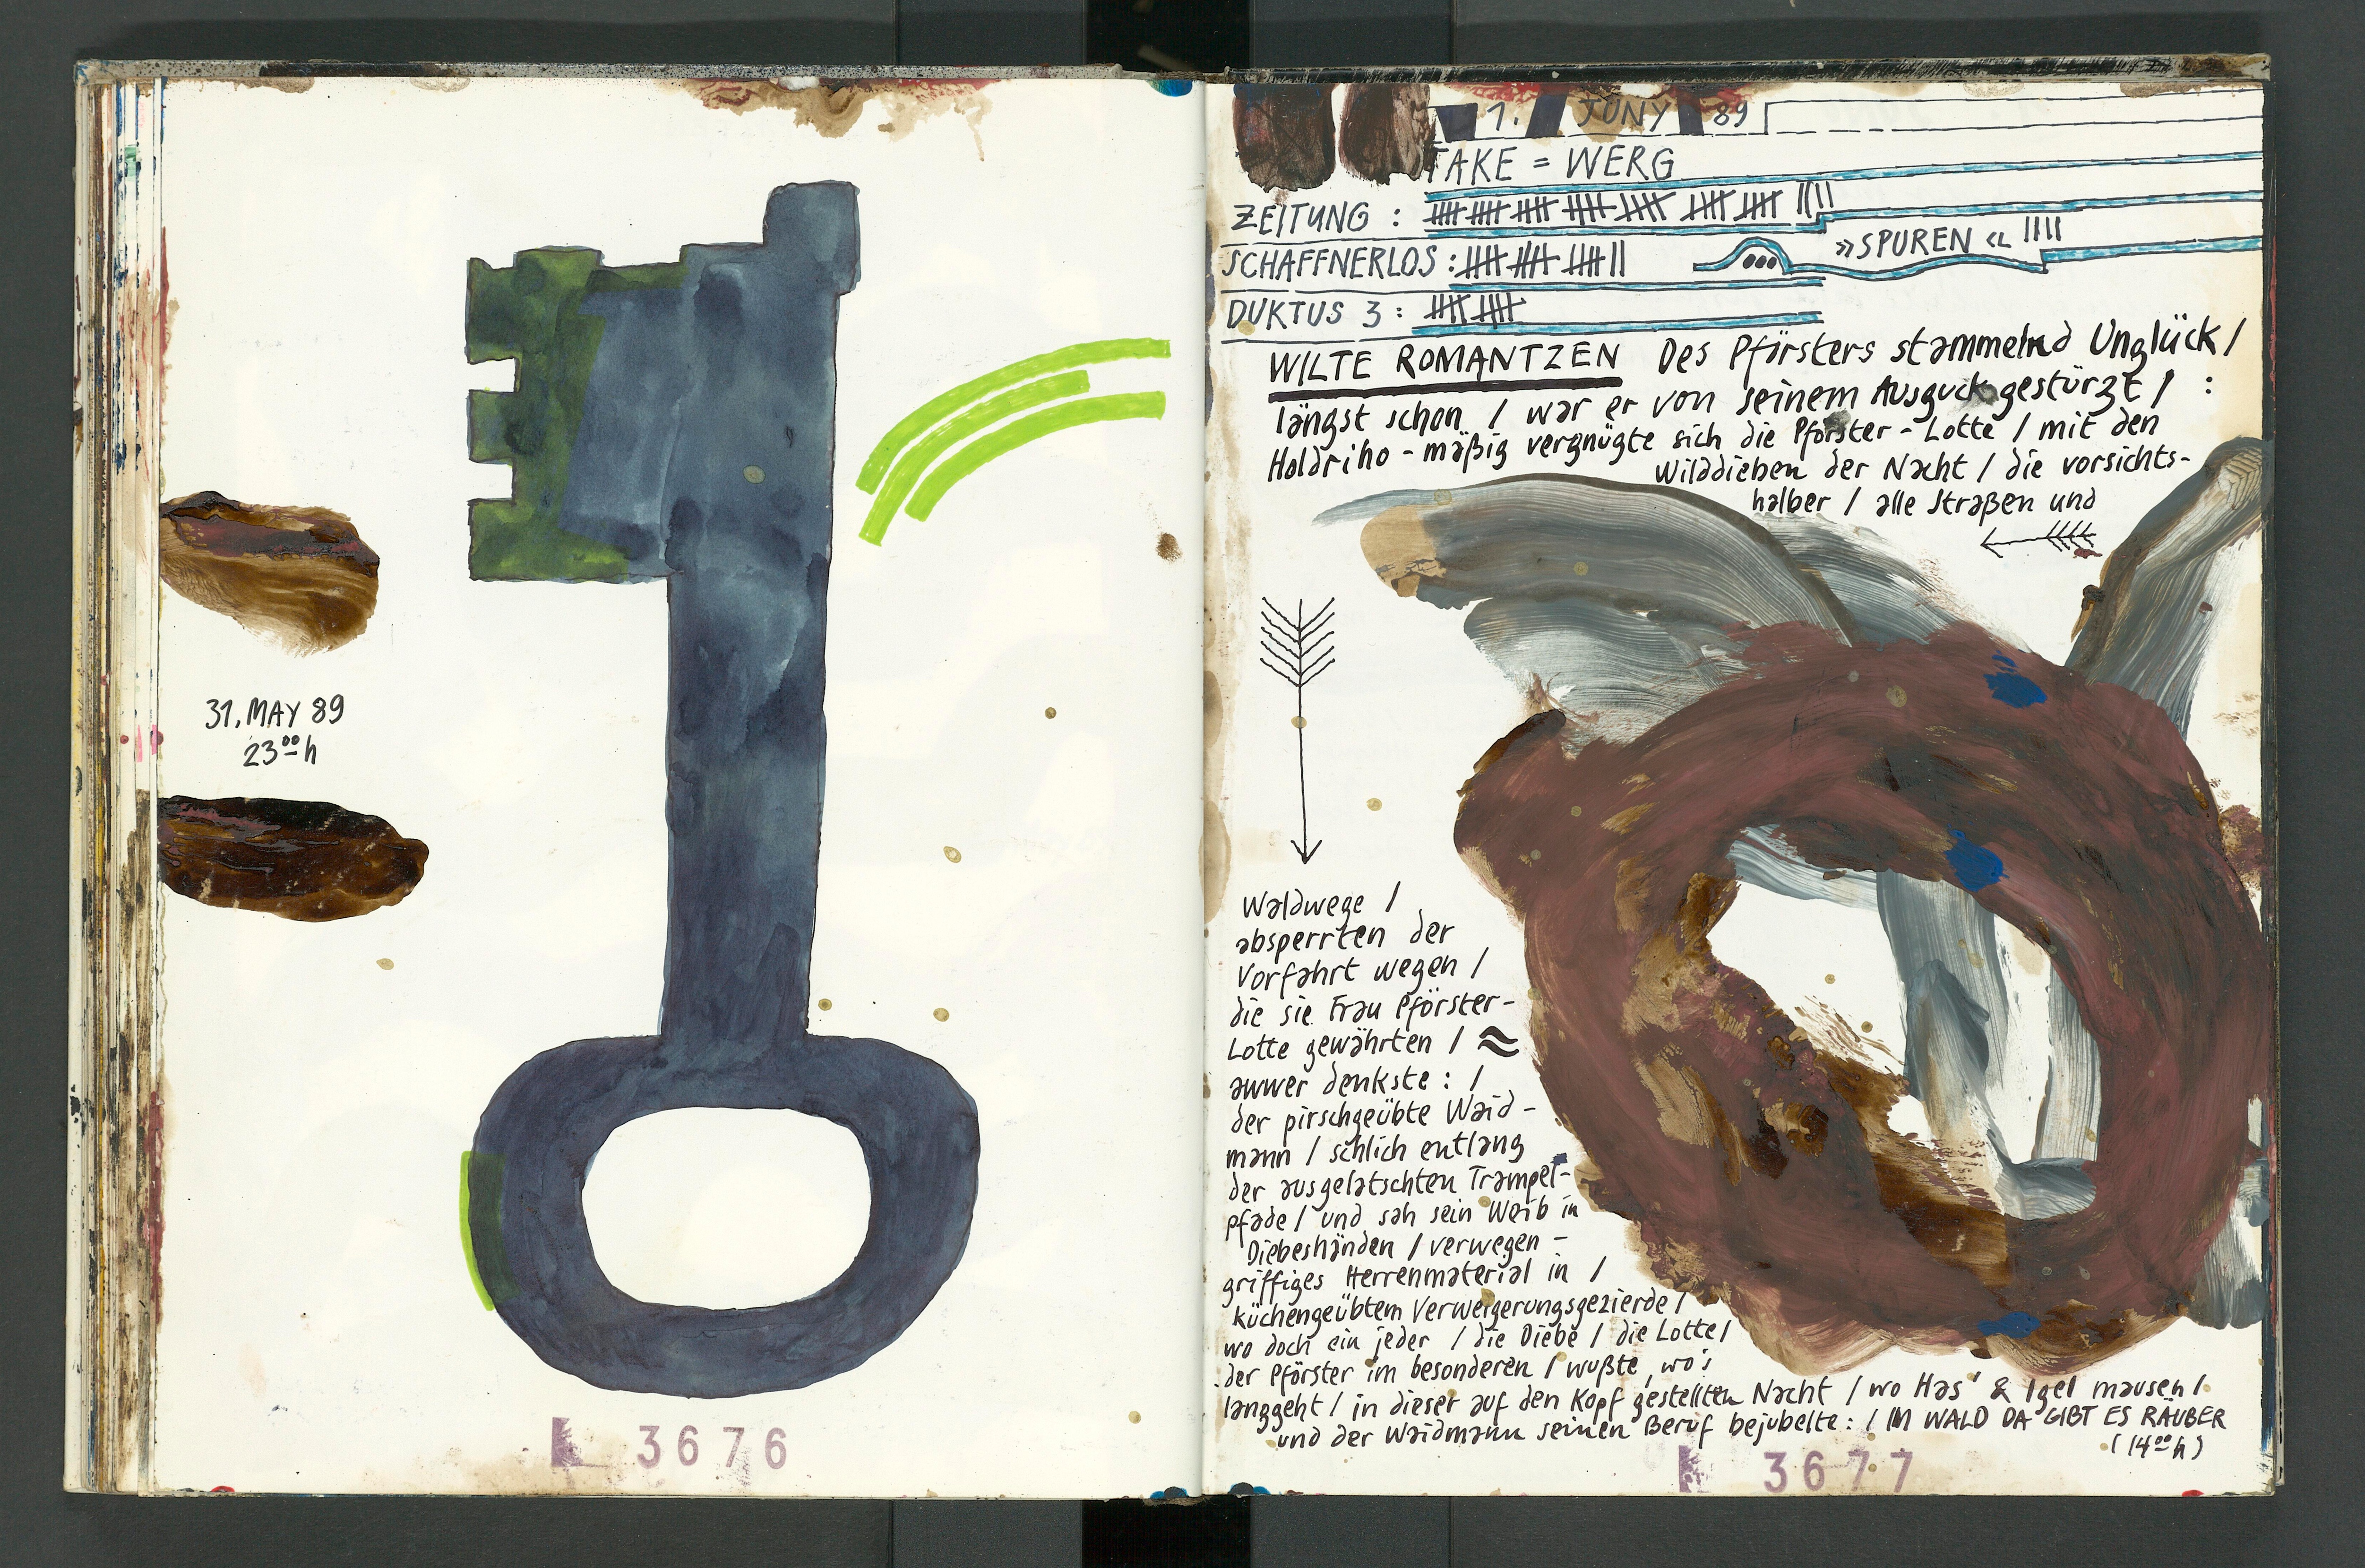 31. MAY 89
23 00 h
3676
1. JUNY 89
TAKE = WERG
ZEITUNG : 卌 卌 卌 卌 卌 卌 卌 ||||
SCHAFFNERLOS : 卌 卌 卌 ||
»SPUREN« ||||
DUKTUS 3 : 卌 卌
WILTE ROMANTZEN Des Pförsters stammelnd Unglück /
längst schon / war er von seinem Ausguck gestürzt / :
Holdriho - mäßig vergnügte sich die Pförster - Lotte / mit den
Wilddieben der Nacht / die vorsichts-
halber / alle Straßen und
Waldwege /
absperrten der
Vorfahrt wegen /
die sie Frau Pförster-
Lotte gewährten / ≈
awwer denkste : /
der pirschgeübte Waid-
mann / schlich entlang
der ausgelatschten Trampel-
pfade / und sah sein Weib in
Diebeshänden / verwegen -
griffiges Herrenmaterial in /
küchengeübtem Verweigerungsgezierde /
wo doch ein jeder / die Diebe / die Lotte /
der Pförster im besonderen / wußte, wo's
langgeht / in dieser auf den Kopf gestellten Nacht / wo Has' & Igel mausen /
und der Waidmann seinen Beruf bejubelte : / IM WALD DA GIBT ES RÄUBER
(14 00 h)
3677